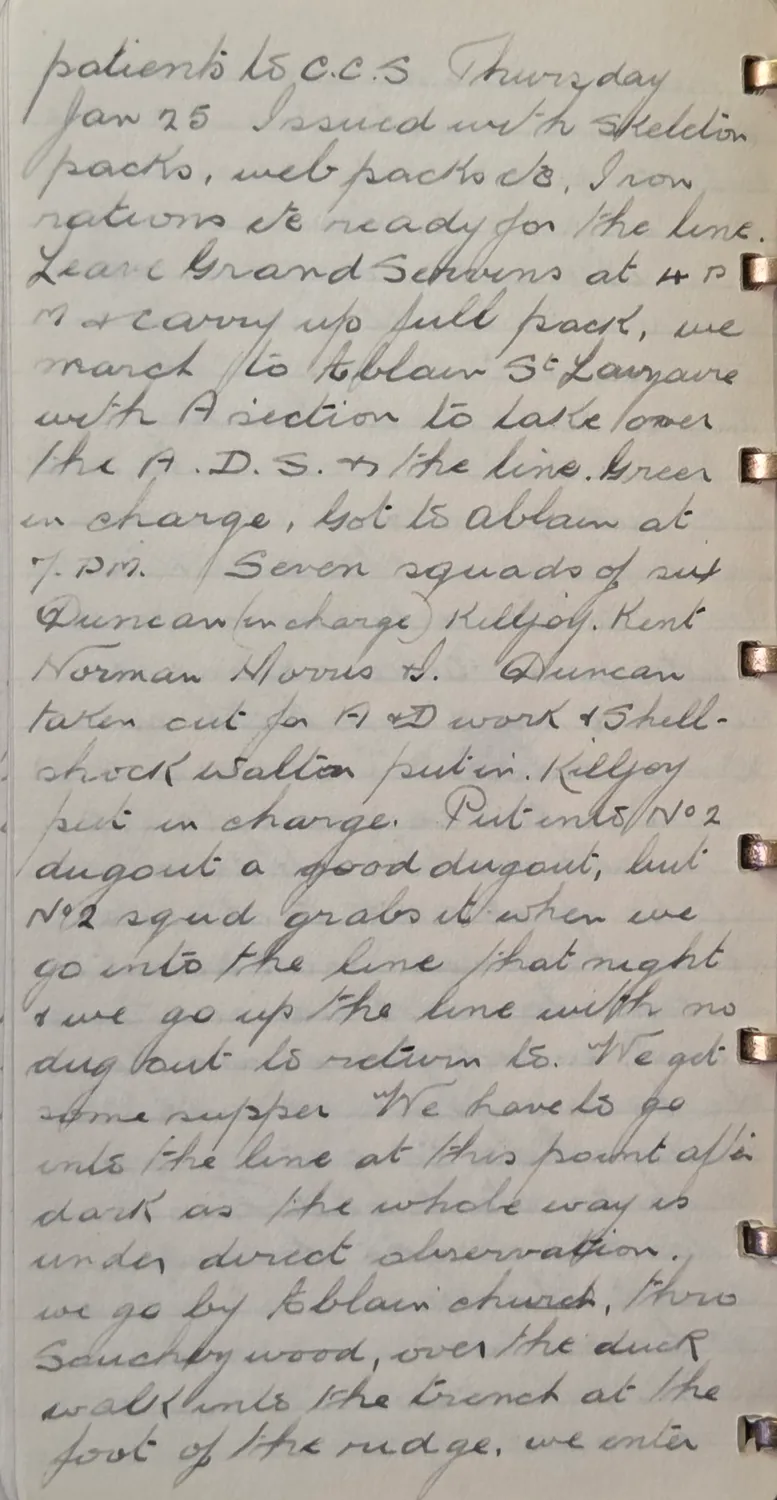 patients to C.C.S Thursday
Jan 25 Issued with skeleton
packs, web packs etc, Iron
rations etc ready for the line.
Leave Grand Servins at 4 P
M & carry up full pack, we
march to Ablain St Lavzaire
with A section to take over
the A.D.S. & the line. Greer
in charge, Got to Ablain at
7. PM. Seven squads of six
Duncan (in charge) Killjoy. Kent
Norman Morris & I. Duncan
taken out for A & D work & Shell-
shock Walton put in. Killjoy
put in charge. Put into No 2
dugout a good dugout, but
No 2 squd grabs it when we
go into the line that night
& we go up the line with no
dug out to return to. We get
some supper We have to go
into the line at this point after
dark as the whole way is
under direct observation.
we go by Ablain church, thro
Souchey wood, over the duck
walk into the trench at the
foot of the ridge. we enter